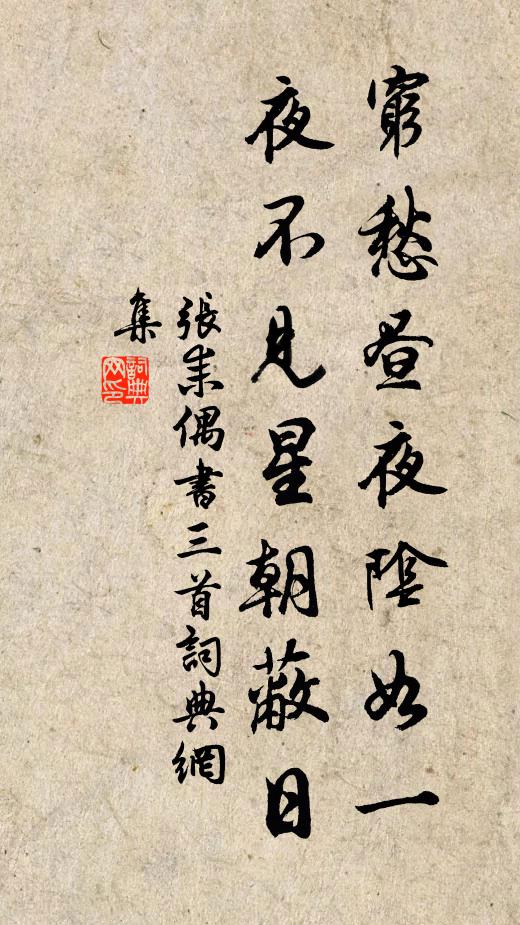 窮愁晝夜陰如一
夜不見星朝蔽日
張耒偶書三首詞典網
集
詞典
网印